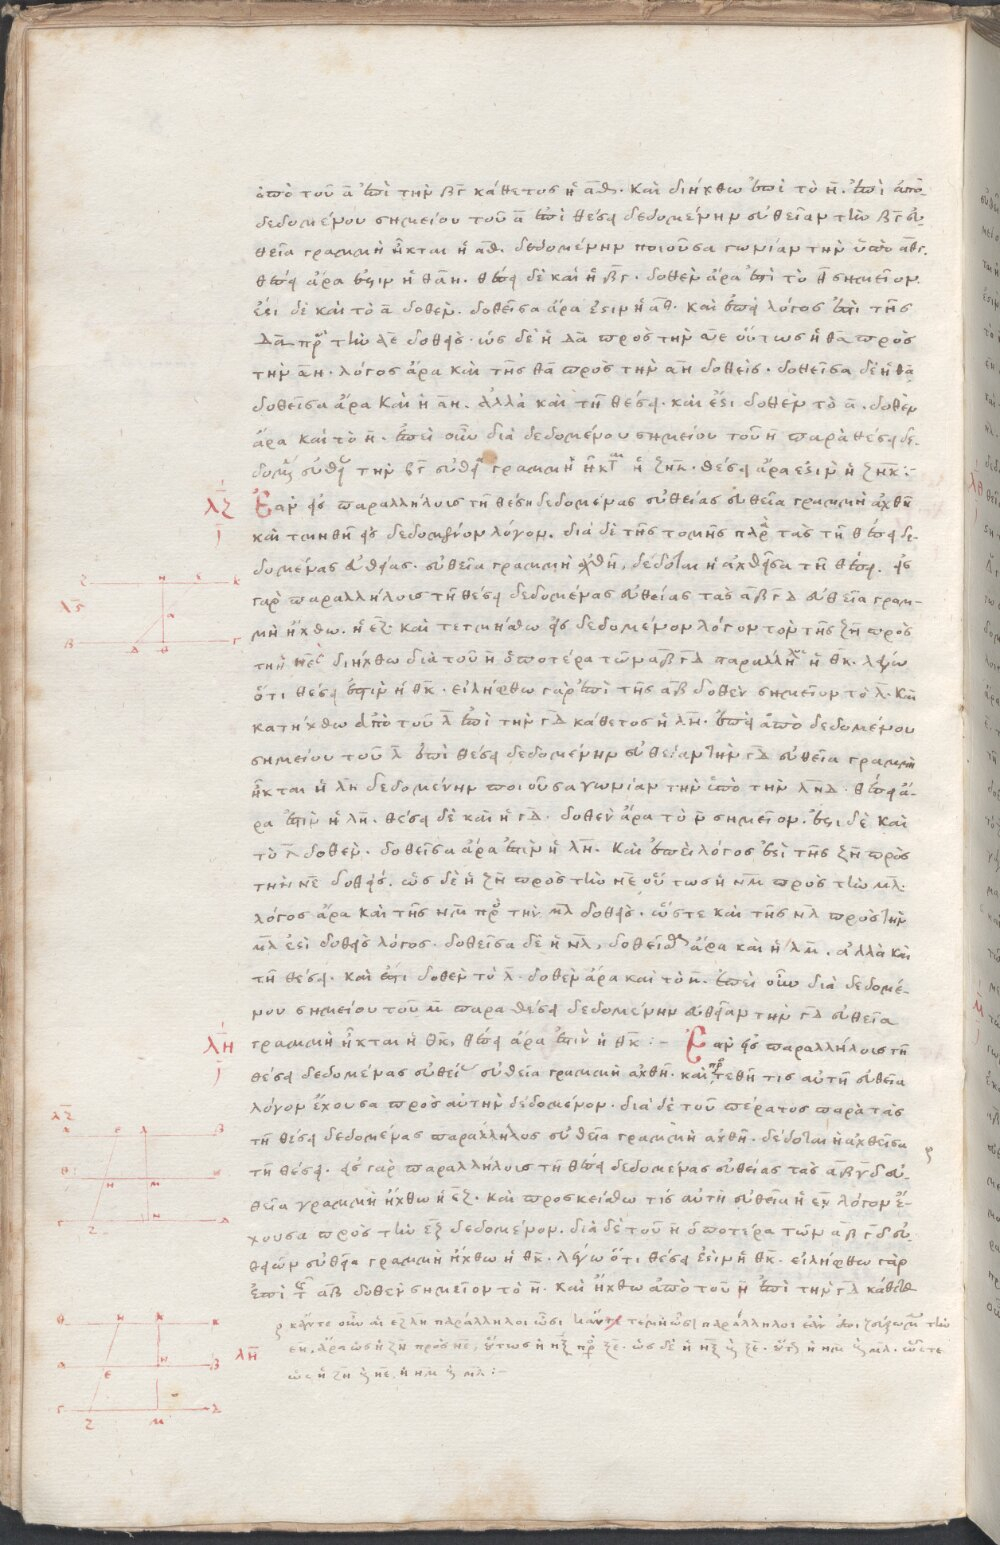 ἀπὸ τοῦ α ἐπὶ τὴν βγ κάθετος ἡ αθ. καὶ διήχθω ἐπὶ τὸ η. ἐπεὶ ἀπὸ
δεδομένου σημείου τοῦ α ἐπὶ θέσει δεδομένην εὐθεῖαν τὴν βγ εὐ-
θεῖα γραμμὴ ἦκται ἡ αθ. δεδομένην ποιοῦσα γωνίαν τὴν ὑπὸ αθγ.
θέσει ἄρα ἐστὶν ἡ θαη. θέσει δὲ καὶ ἡ βγ. δοθὲν ἄρα ἐστὶ τὸ θ σημεῖον.
ἔστι δὲ καὶ τὸ α δοθέν. δοθεῖσα ἄρα ἐστὶν ἡ αθ. καὶ ἐπεὶ λόγος ἐστὶ τῆς
δα πρὸς τὴν αε δοθείς. ὡς δὲ ἡ δα πρὸς τὴν αε οὕτως ἡ θα πρὸς
τὴν αη. λόγος ἄρα καὶ τῆς θα πρὸς τὴν αη δοθείς. δοθεῖσα δὲ ἡ θα
δοθεῖσα ἄρα καὶ ἡ αη. ἀλλὰ καὶ τῇ θέσει. καὶ ἔστι δοθὲν τὸ α. δοθὲν
ἄρα καὶ τὸ η. ἐπεὶ οὖν διὰ δεδομένου σημείου τοῦ η παρὰ θέσει δε-
δομένην εὐθεῖαν τὴν βγ εὐθεῖα γραμμὴ ἦκται ἡ ζηκ. θέσει ἄρα ἐστὶν ἡ ζηκ :-
λζ Ἐὰν εἰς παραλλήλους τῇ θέσει δεδομένας εὐθείας εὐθεῖα γραμμὴ ἀχθῇ
καὶ τμηθῇ εἰς δεδομένον λόγον. διὰ δὲ τῆς τομῆς παρὰ τὰς τῇ θέσει δε-
δομένας εὐθείας. εὐθεῖα γραμμὴ ἀχθῇ, δέδοται ἡ ἀχθεῖσα τῇ θέσει. εἰς
γὰρ παραλλήλους τῇ θέσει δεδομένας εὐθείας τὰς αβ γδ εὐθεῖα γραμ-
μὴ ἤχθω. ἡ εζ καὶ τετμήσθω εἰς δεδομένον λόγον τὸν τῆς ζη πρὸς
τὴν ηε διήχθω διὰ τοῦ η ὁποτέρα τῶν αβ γδ παράλληλος ἡ θκ. λέγω
ὅτι θέσει ἐστὶν ἡ θκ. εἰλήφθω γὰρ ἐπὶ τῆς αβ δοθὲν σημεῖον τὸ λ. καὶ
κατήχθω ἀπὸ τοῦ λ ἐπὶ τὴν γδ κάθετος ἡ λν. ἐπεὶ ἀπὸ δεδομένου
σημείου τοῦ λ ἐπὶ θέσει δεδομένην εὐθεῖαν τὴν γδ εὐθεῖα γραμμὴ
ἦκται ἡ λν δεδομένην ποιοῦσα γωνίαν τὴν ὑπὸ τὴν λνδ. θέσει ἄ-
ρα ἐστὶν ἡ λν. θέσει δὲ καὶ ἡ γδ. δοθὲν ἄρα τὸ ν σημεῖον. ἔστι δὲ καὶ
τὸ λ δοθέν. δοθεῖσα ἄρα ἐστὶν ἡ λν. καὶ ἐπεὶ λόγος ἐστὶ τῆς ζη πρὸς
τὴν ηε δοθείς. ὡς δὲ ἡ ζη πρὸς τὴν ηε οὕτως ἡ νμ πρὸς τὴν μλ.
λόγος ἄρα καὶ τῆς νμ πρὸς τὴν μλ δοθείς. ὥστε καὶ τῆς νλ πρὸς τὴν
μλ ἐστὶ δοθεὶς λόγος. δοθεῖσα δὲ ἡ νλ, δοθεῖσα ἄρα καὶ ἡ λμ. ἀλλὰ καὶ
τῇ θέσει. καὶ ἔστι δοθὲν τὸ λ. δοθὲν ἄρα καὶ τὸ μ. ἐπεὶ οὖν διὰ δεδομέ-
νου σημείου τοῦ μ παρὰ θέσει δεδομένην εὐθεῖαν τὴν γδ εὐθεῖα
γραμμὴ ἦκται ἡ θκ, θέσει ἄρα ἐστὶν ἡ θκ :- λη Ἐὰν εἰς παραλλήλους τῇ
θέσει δεδομένας εὐθείας εὐθεῖα γραμμὴ ἀχθῇ. καὶ προστεθῇ τις αὐτῇ εὐθεῖα
λόγον ἔχουσα πρὸς αὐτὴν δεδομένον. διὰ δὲ τοῦ πέρατος παρὰ τὰς
τῇ θέσει δεδομένας παράλληλος εὐθεῖα γραμμὴ ἀχθῇ. δέδοται ἡ ἀχθεῖσα
τῇ θέσει. εἰς γὰρ παραλλήλους τῇ θέσει δεδομένας εὐθείας τὰς αβ γδ εὐ-
θεῖα γραμμὴ ἤχθω ἡ εζ. καὶ προσκείσθω τις αὐτῇ εὐθεῖα ἡ εη λόγον ἔ-
χουσα πρὸς τὴν εζ δεδομένον. διὰ δὲ τοῦ η ὁποτέρα τῶν αβ γδ εὐ-
θειῶν εὐθεῖα γραμμὴ ἤχθω ἡ θκ. λέγω ὅτι θέσει ἐστὶν ἡ θκ. εἰλήφθω γὰρ
ἐπὶ τῆς αβ δοθὲν σημεῖον τὸ ν. καὶ ἤχθω ἀπὸ τοῦ ν ἐπὶ τὴν γδ κάθετος
κἄν τε οὖν αἱ εζ λν παράλληλοι ὦσι κἄν τε μὴ ὦσι παράλληλοι ἐὰν ἐπιζεύξωμεν τὴν
εν. ἄρα ὡς ἡ ζη πρὸς ηε, οὕτως ἡ νξ πρὸς ξε. ὡς δὲ ἡ νξ πρὸς ξε. οὕτως ἡ νμ πρὸς μλ. ὥστε
ὡς ἡ ζη πρὸς ηε, ἡ νμ πρὸς μλ :-
λς
λζ
λη